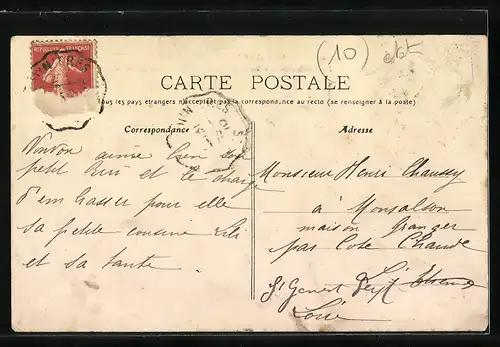 REPUBLIQUE FRANÇAISE
(10)
CARTE POSTALE
Tous les pays étrangers n'acceptent pas la correspondance au recto (se renseigner à la poste)
Correspondance
Adresse
Vonvon aime bien son
petit Riri et le charge
d'embrasser pour elle
sa petite cousine Lili
et sa tante
Monsieur Henri Chaussy
à Monsalson
maison Granger
par Cote Chaude
St Etienne
St Genest Lerpt
Loire